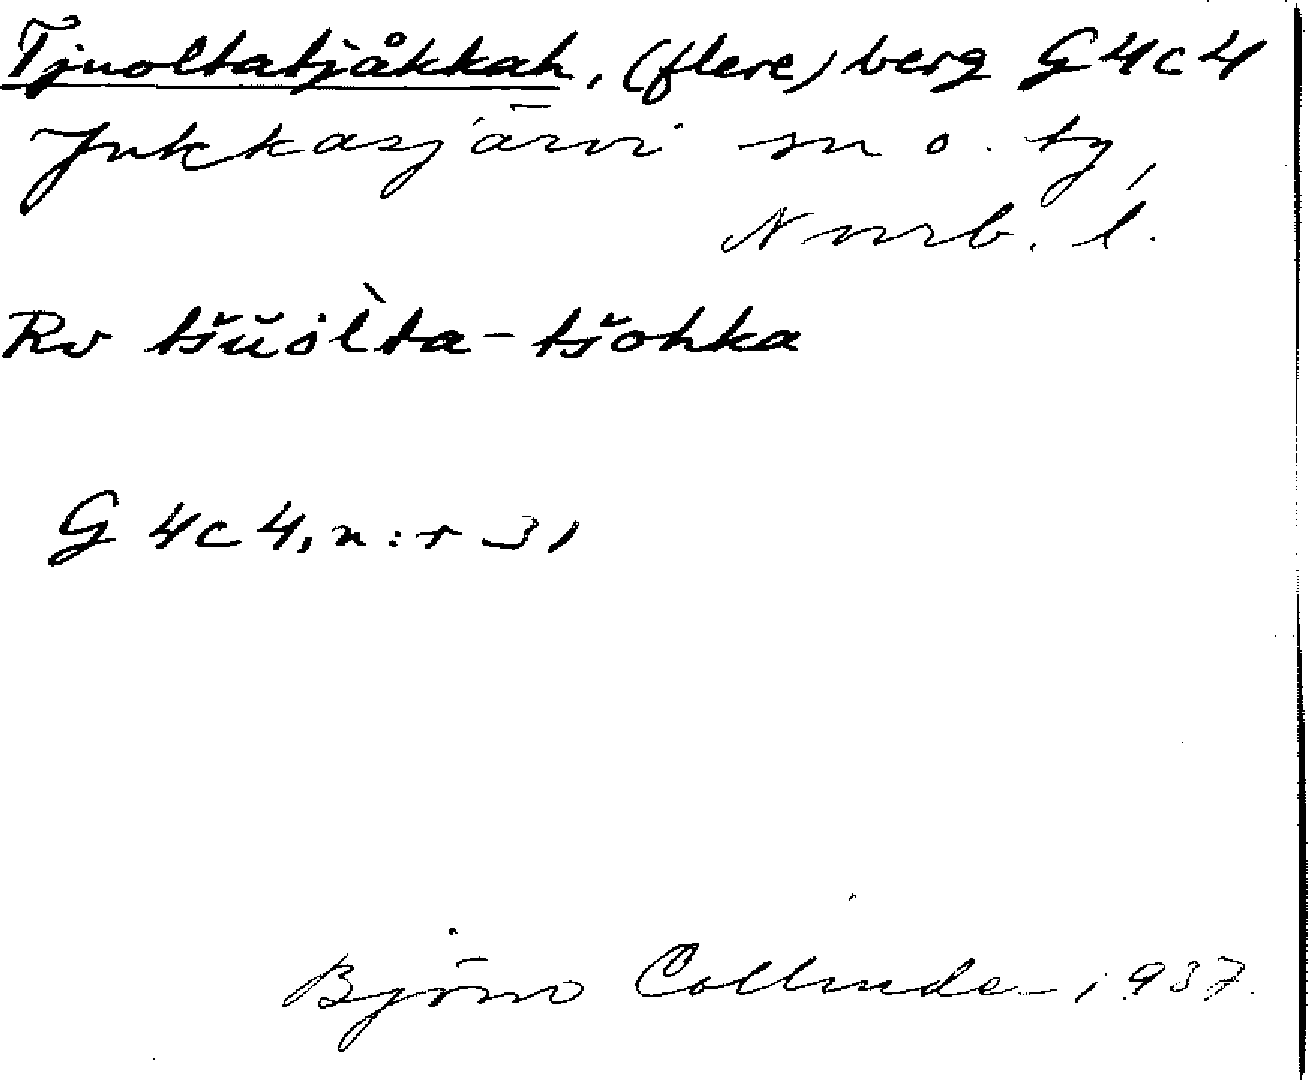 Tjuoltatjåkkah, (flere) berg G4c4
Jukkasjärvi sn o. tg,
Nnrb. l.
Rv tšŭòl̀ta-tšohka
G 4c4, n:r 31
Björn Collinder 1937.